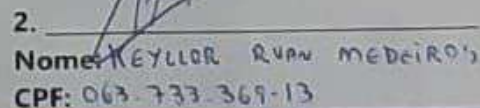 2.
Nome: KEYLLOR RUAN MEDEIROS
CPF: 063.733.369-13